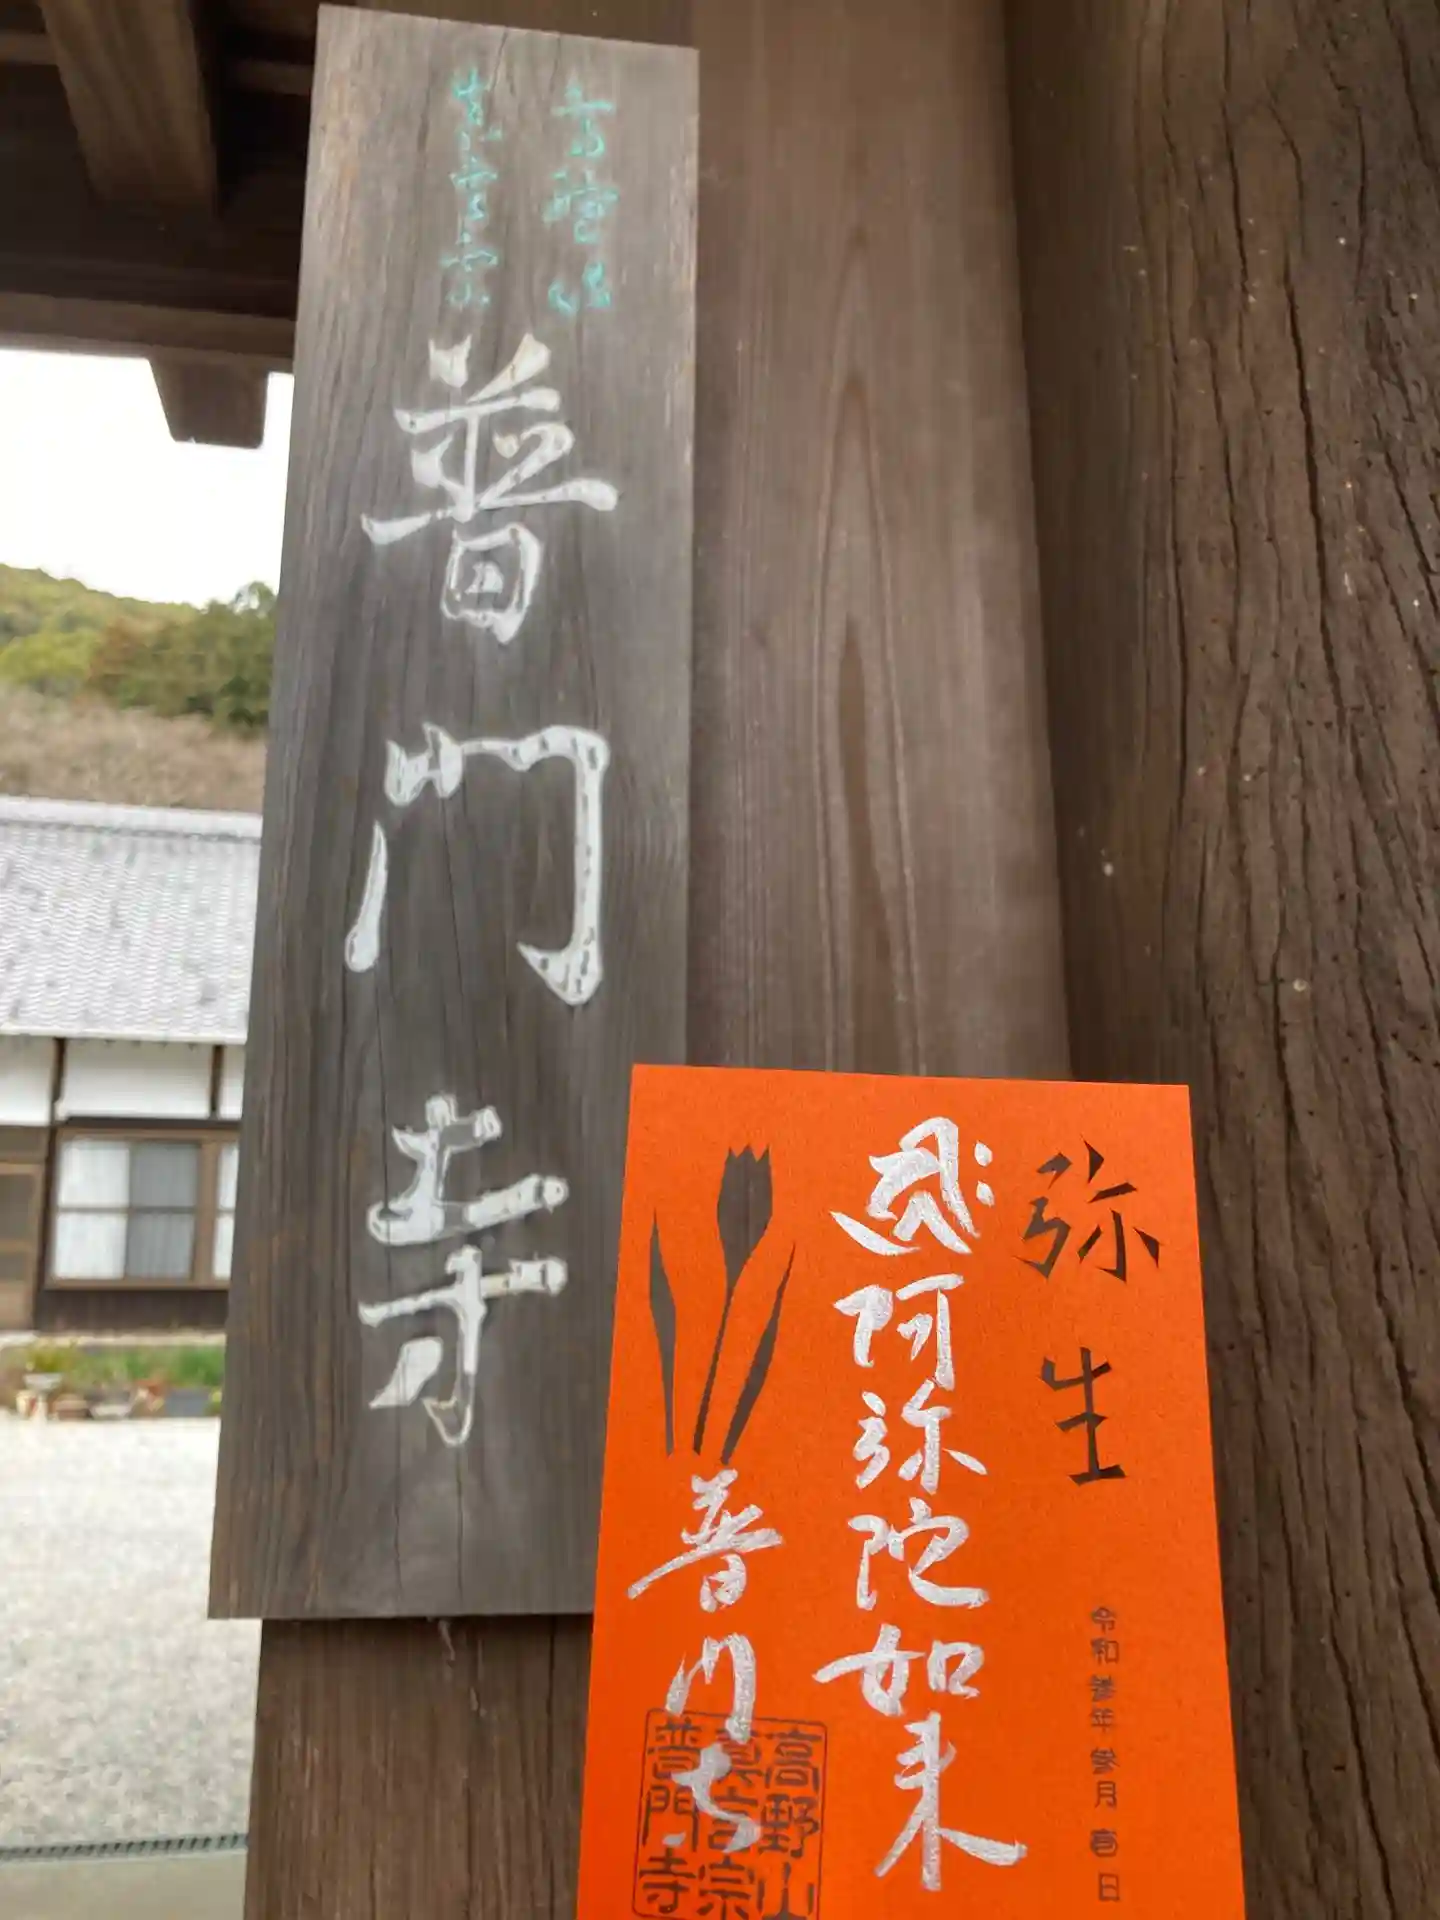 真言宗
普門寺
弥生
阿弥陀如来
普門寺
令和参年参月吉日
高野山
真言宗
普門寺